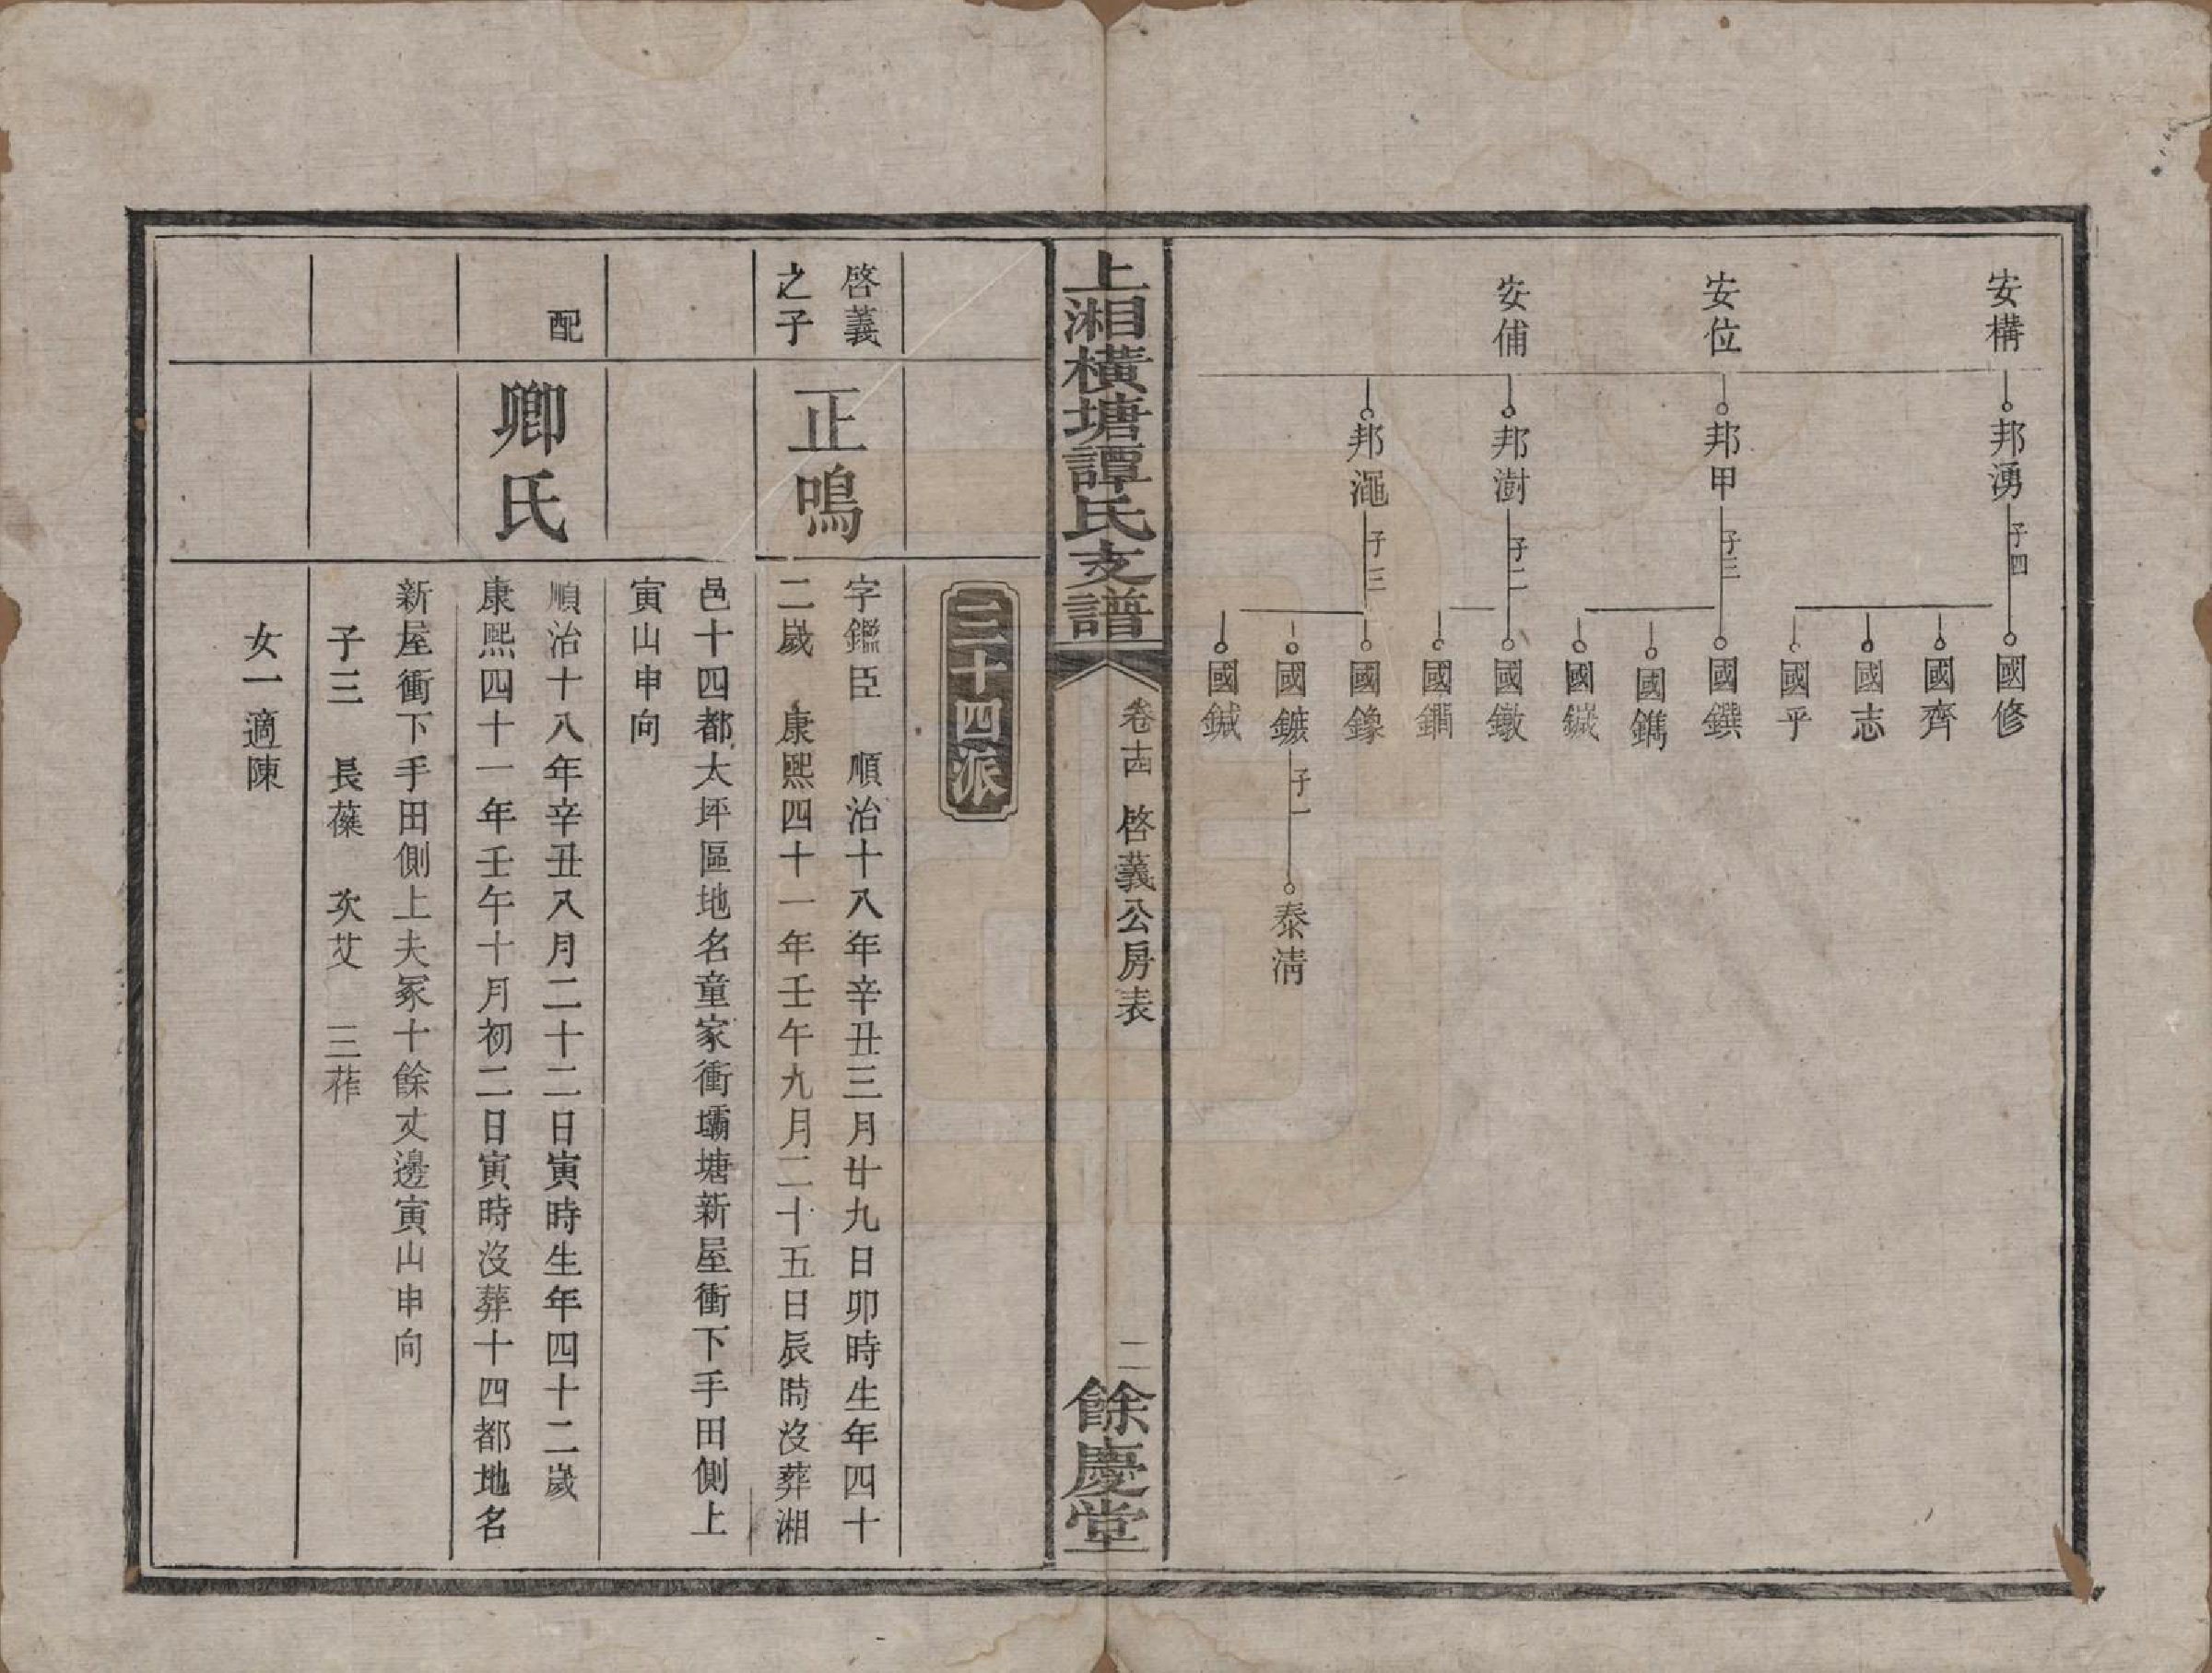 安構
邦湧 子四
國修
國齊
國志
國平
安位
邦甲 子三
國鐉
國鐫
國鍼
安俌
邦澍 子二
國鐓
邦澠 子三
國鐌
國鏃 子一
泰清
國鍼
上湘橫塘譚氏支譜
卷十四 啓義公房表
二
餘慶堂
二十四派
啓義之子
正鳴
字鑑臣 順治十八年辛丑三月廿九日卯時生年四十
二歲 康熙四十一年壬午九月二十五日辰時沒葬湘
邑十四都大坪區地名童家衝壩塘新屋衝下手田側上
寅山申向
配
卿氏
順治十八年辛丑八月二十二日寅時生年四十二歲
康熙四十一年壬午十月初二日寅時沒葬十四都地名
新屋衝下手田側上夫冢十餘丈邊寅山申向
子三 長蕴 次艾 三葄
女一適陳